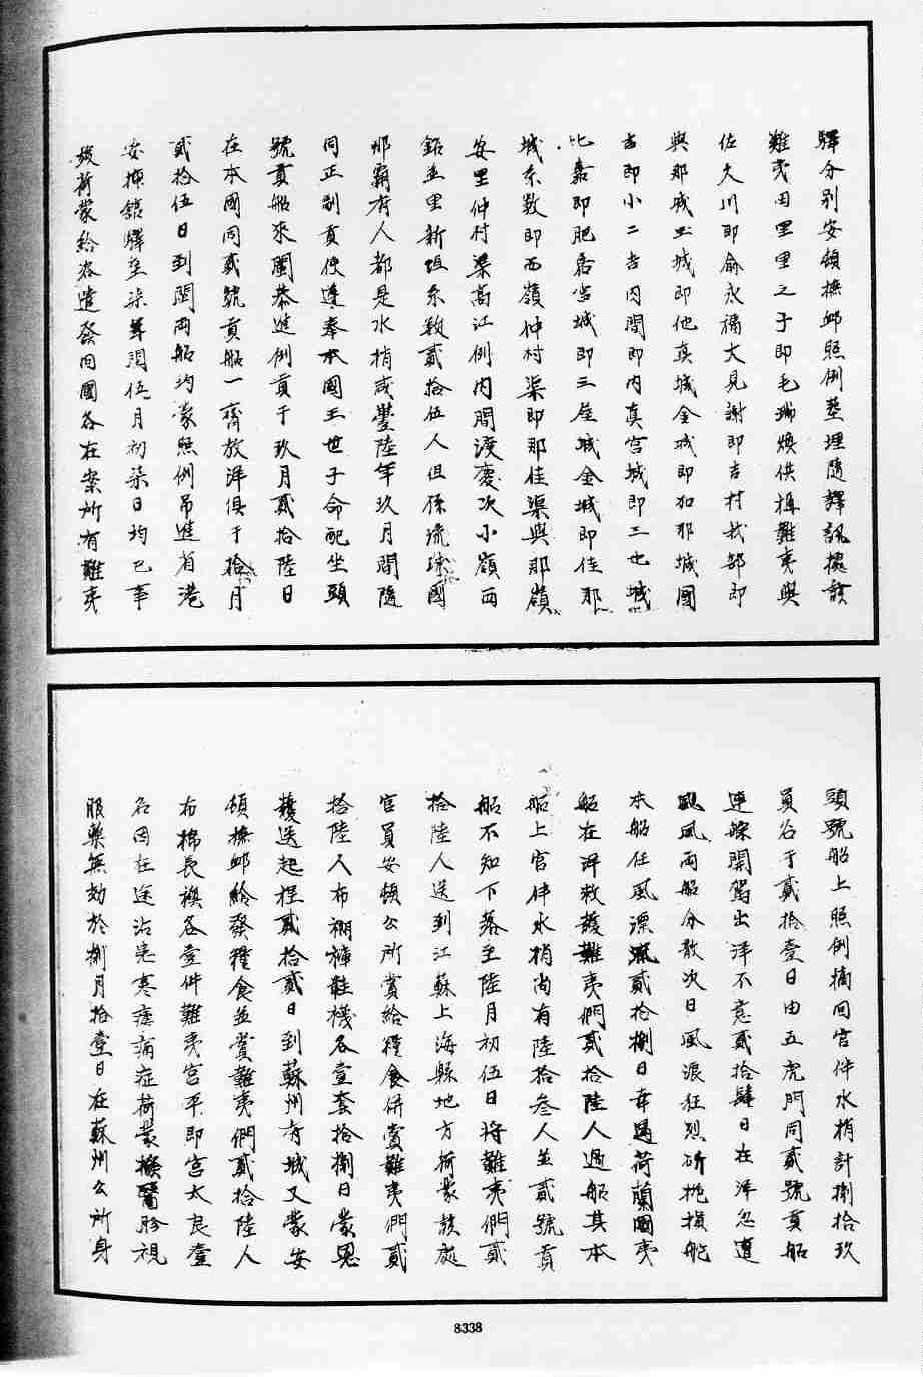 驛分別安頓撫卹照例塟埋隨譯訊據該
難夷田里里之子即毛瑞煥供掉難夷與
佐久川即俞永福大見謝即吉村我部即
與那城玉城即他真城金城即加那城國
吉即小二吉內間即內真宮城即三也城
比嘉即肥喜宮城即三座城金城即佳那
城系数即西嶺仲村渠即那佳渠與那嶺
安里仲村渠高江例內間渡慶次小嶺西
銘並里新垣系数貳拾伍人但係流琉國
那霸有人都是水梢咸豐陸年玖月間隨
同正副貢使遵奉本國王世子命配坐頭
號貢船來閩恭進例貢于玖月貳拾陸日
在本國同貳號貢船一齊放洋俱于拾月
貳拾伍日到閩兩船均蒙照例吊進省港
安插館驛至柒年閏伍月初柒日均已事
竣荷蒙給咨遣發回國各在案所有難夷
頭號船上照例摘回官伴水梢計捌拾玖
員名于貳拾壹日由五虎門同貳號貢船
連䑸開駕出洋不意貳拾肆日在洋忽遭
颶風兩船分散次日風浪狂烈砍桅損舵
本船任風漂流貳拾捌日幸遇荷蘭國夷
船在洋救護難夷們貳拾陸人過船其本
船上官伴水梢尚有陸拾叁人並貳號貢
船不知下落至陸月初伍日將難夷們貳
拾陸人送到江蘇上海縣地方荷蒙該處
官員安頓公所賞給糧食併賞難夷們貳
拾陸人布裯褲鞋襪各壹套拾捌日蒙恩
護送起程貳拾貳日到蘇州有城又蒙安
頓撫卹給發糧食並賞難夷們貳拾陸人
布棉長襖各壹件難夷宮平即宮太良壹
名因在途沾患寒瘧痛症荷蒙撥醫胗視
服藥無効於捌月拾壹日在蘇州公所身
8338